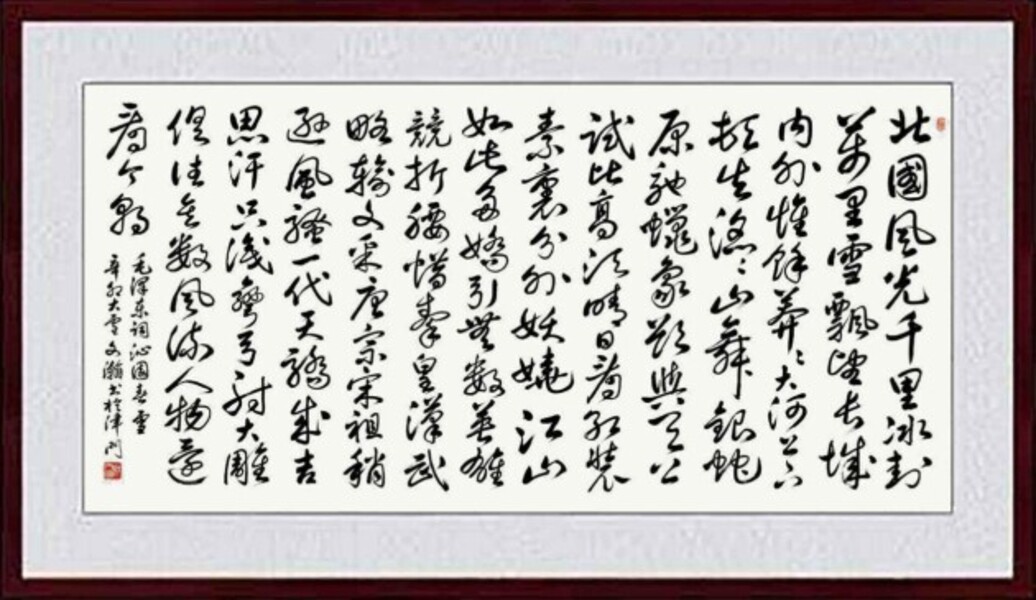 北國风光千里冰封
萬里雪飄望长城
内外惟餘莽々大河上下
顿失滔々山舞银蛇
原驰蠟象欲與天公
试比高须晴日看红装
素裹分外妖娆江山
如此多嬌引無数英雄
競折腰惜秦皇漢武
略输文采唐宗宋祖稍
逊風骚一代天骄成吉
思汗只識彎弓射大雕
俱往矣数風流人物還
看今朝
毛澤东词沁園春雪
辛卯大雪文瀚书於津门